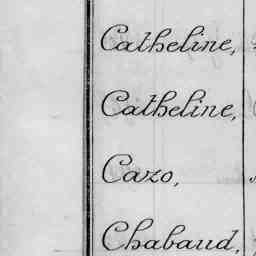 Catheline,
Catheline,
Cazo,
Chabaud,